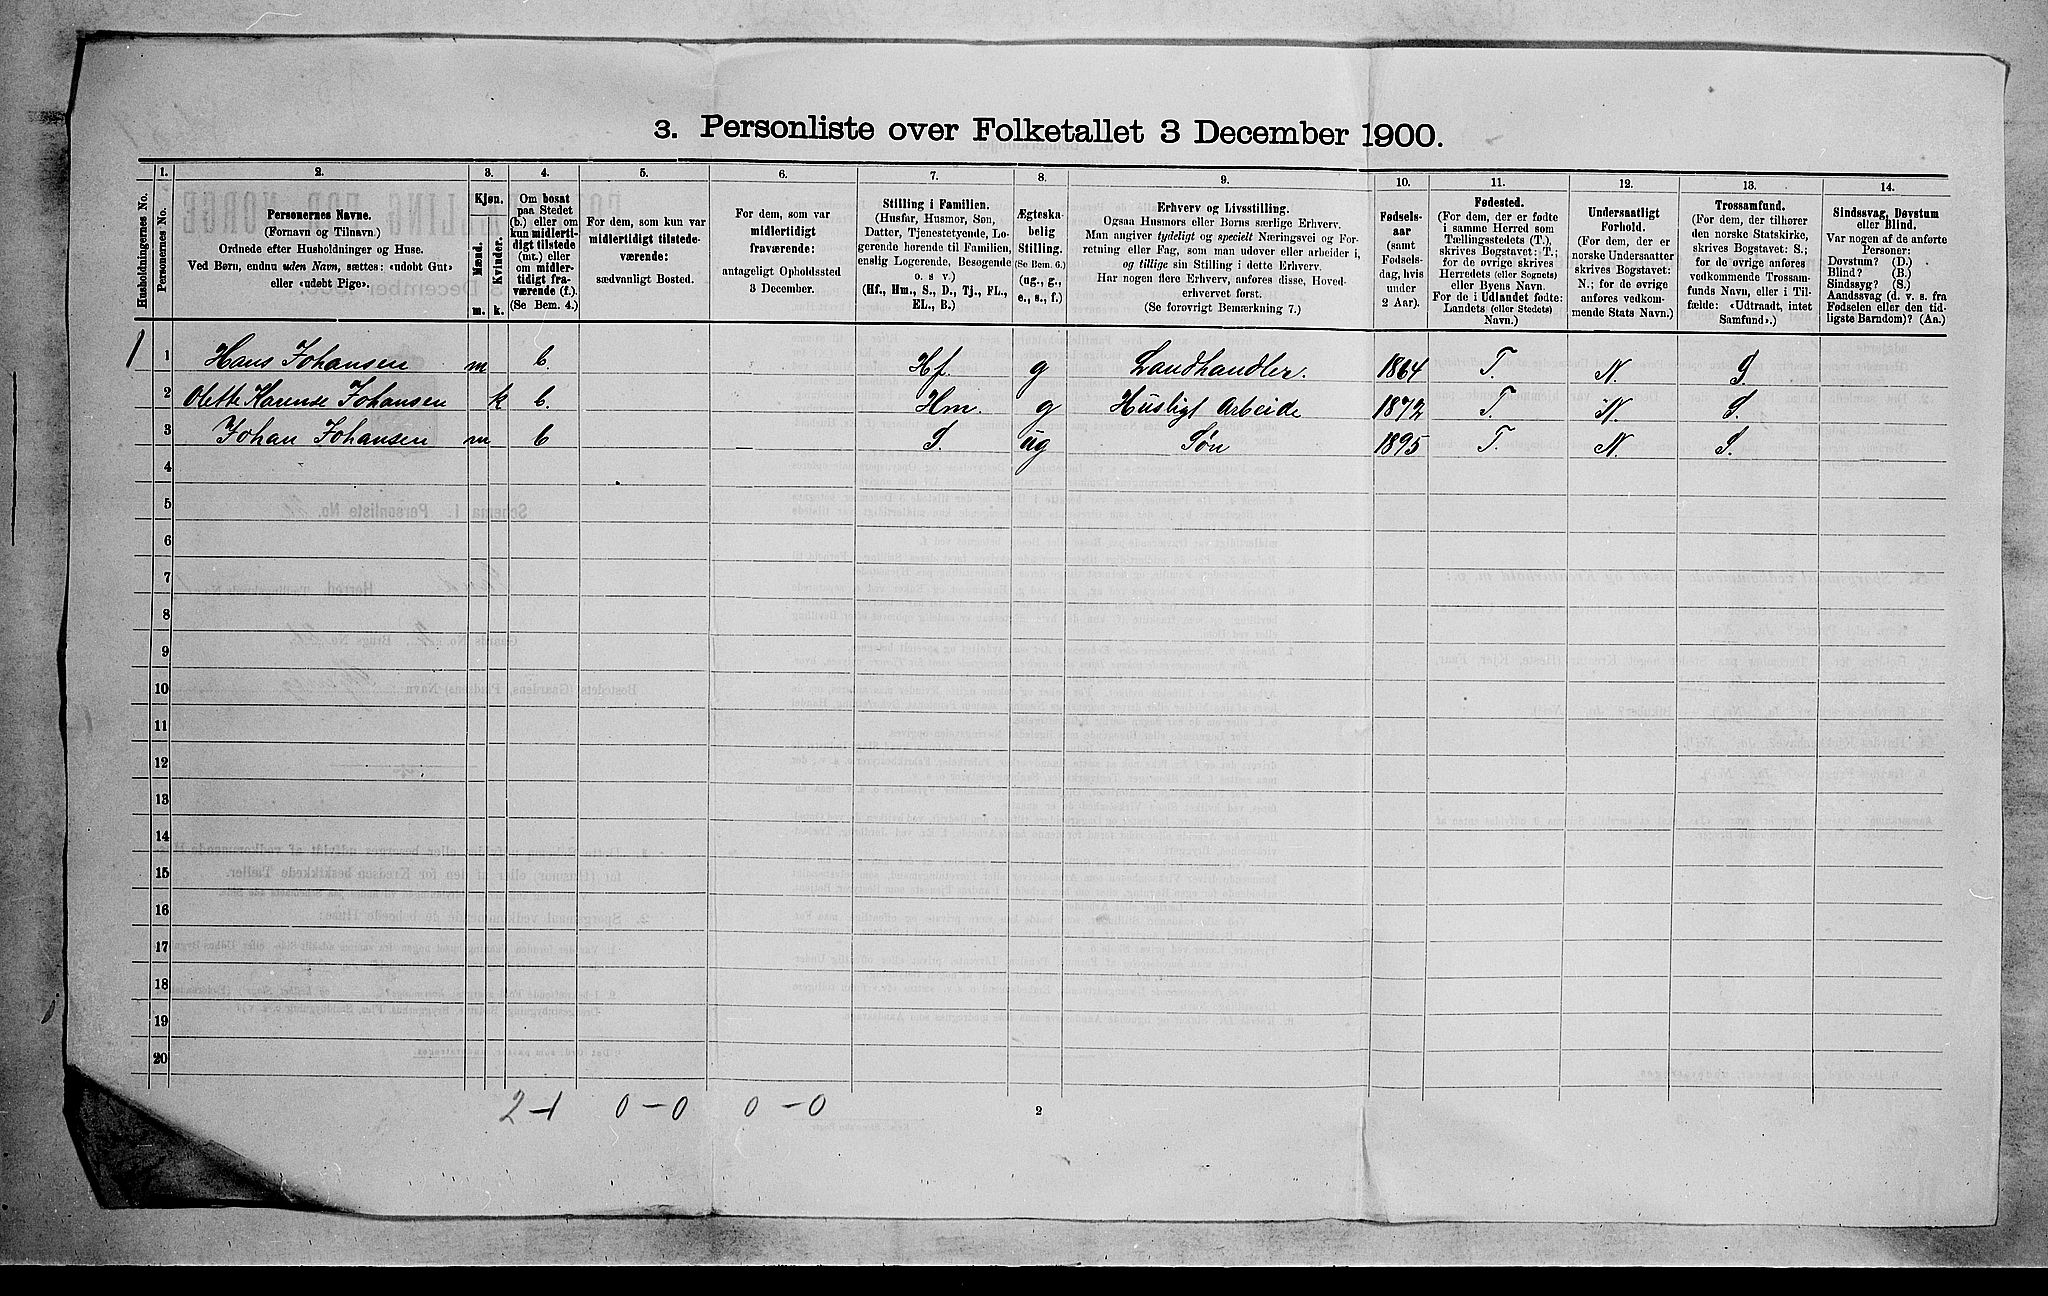 3. Personliste over Folketallet 3 December 1900.
Husholdningernes No.
1.
Personernes No.
2.
Personernes Navne.
(Fornavn og Tilnavn.)
Ordnede efter Husholdninger og Huse.
Ved Børn, endnu uden Navn, sættes: «udøbt Gut»
eller «udøbt Pige».
3.
Kjøn.
Mænd.
m.
Kvinder.
k.
4.
Om bosat
paa Stedet
(b.) eller om
kun midlerti-
digt tilstede
(mt.) eller
om midler-
tidigt fra-
værende (f.).
(Se Bem. 4.)
5.
For dem, som kun var
midlertidigt tilstede-
værende:
sædvanligt Bosted.
6.
For dem, som var
midlertidigt
fraværende:
antageligt Opholdssted
3 December.
7.
Stilling i Familien.
(Husfar, Husmor, Søn,
Datter, Tjenestetyende, Lo-
gerende hørende til Familien,
enslig Logerende, Besøgende
o. s v.)
(Hf., Hm., S., D., Tj., FL.,
EL., B.)
8.
Ægteska-
belig
Stilling.
(Se Bem. 6.)
(ug., g.,
e., s., f.)
9.
Erhverv og Livsstilling.
Ogsaa Husmors eller Børns særlige Erhverv.
Man angiver tydeligt og specielt Næringsvei og For-
retning eller Fag, som man udøver eller arbeider i,
og tillige sin Stilling i dette Erhverv.
Har nogen flere Erhverv, anføres disse, Hoved-
erhvervet først.
(Se forøvrigt Bemærkning 7.)
10.
Fødsels-
aar
(samt
Fødsels-
dag, hvis
under
2 Aar).
11.
Fødested.
(For dem, der er fødte
i samme Herred som
Tællingsstedets (T.),
skrives Bogstavet: T.;
for de øvrige skrives
Herredets (eller Sognets)
eller Byens Navn.
For de i Udlandet fødte:
Landets (eller Stedets)
Navn.)
12.
Undersaatligt
Forhold.
(For dem, der er
norske Undersaatter
skrives Bogstavet:
N.; for de øvrige
anføres vedkom-
mende Stats Navn.)
13.
Trossamfund.
(For dem, der tilhører
den norske Statskirke,
skrives Bogstavet: S.;
for de øvrige anføres
vedkommende Trossam-
funds Navn, eller i Til-
fælde: «Udtraadt, intet
Samfund».)
14.
Sindssvag, Døvstum
eller Blind.
Var nogen af de anførte
Personer:
Døvstum? (D.)
Blind? (B.)
Sindssyg? (S.)
Aandssvag (d. v. s. fra
Fødselen eller den tid-
ligste Barndom)? (Aa.)
1 1 Hans Johansen m b. Hf. g Landhandler. 1864 T. N. S
2 Olette Karense Johansen k b. Hm. g Husligt Arbeide 1872 T. N. S.
3 Johan Johansen m b S. ug Søn 1895 T. N. S.
4
5
6
7
8
9
10
11
12
13
14
15
16
17
18
19
20
2-1 0-0 0-0
2